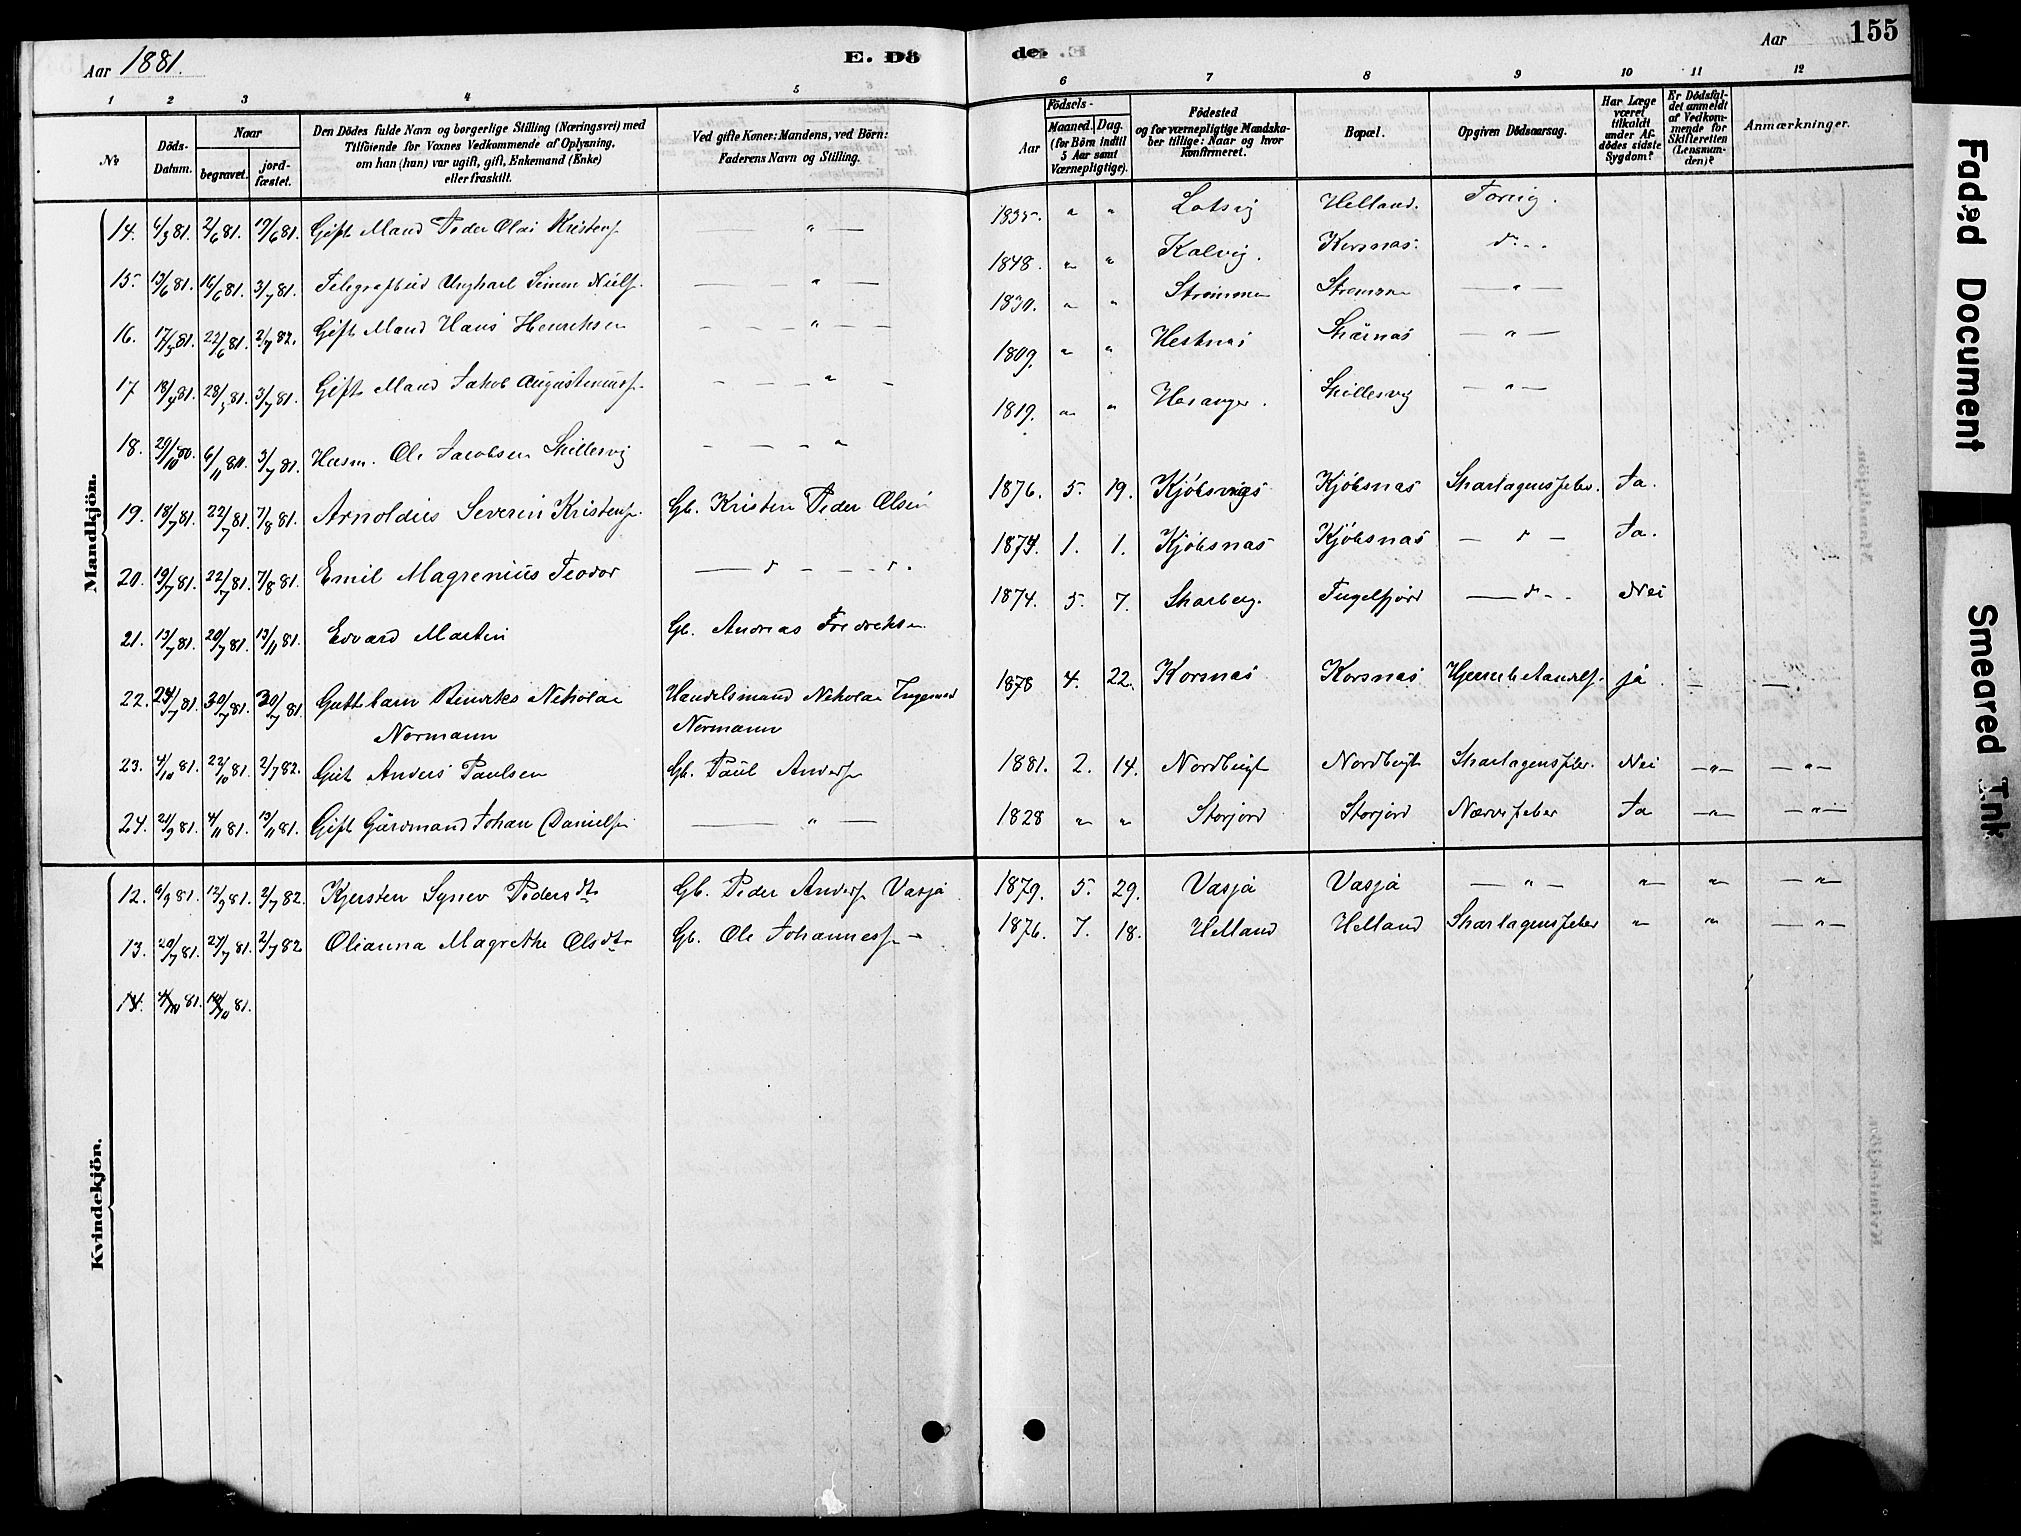 Aar 1881.
E. Dö
de. E.
Aar
155
1 2 3 4 5 6 7 8 9 10 11 12
No
Döds-Datum.
Naar
begravet.
jord-fæstet.
Den Dödes fulde Navn og borgerlige Stilling (Næringsvei) med
Tilföiende for Voxnes Vedkommende af Oplysning,
om han (hun) var ugift, gift, Enkemand (Enke)
eller fraskilt.
Ved gifte Koner: Mandens, ved Börn:
Faderens Navn og Stilling.
Födsels-
Aar
Maaned. Dag.
(for Börn indtil
5 Aar samt
Værnepligtige).
Födested
og for værnepligtige Mandska-
ber tillige: Naar og hvor
Konfirmeret.
Bopæl.
Opgiven Dödsaarsag.
Har Læge
været
tilkaldt
under Af-
dödes sidste
Sygdom?
Er Dödsfal-
det anmeldt
af Vedkom-
mende for
Skifteretten
(Lensman-
den)?
Anmærkninger.
Mandkjön.
14. 2/6 81. 19/6 81. Gift Mand Peder Olai Kristens. " 1835. " " Helland.
15. 13/6 81. 16/6 81. 3/7 81. " 1848. " " Kalvig. Korsnas. do
16. 22/6 81. 2/7 82. Gift Mand Hans Henriksen " 1830. " " Strømmen "
17 3/7 81. Gift Mand Jakob Augustinuss. " 1809. " " Hestnas Skarnas "
18. 29/10 80. 3/7 81. Husm. Ole Jacobsen Skillesvig " 1819. " " Skillesvig "
19. 18/7 81. 22/7 81. 7/8 81. Arnoldus Severin Kristens. Gb. Kristen Peder Olsen 1876. 5. 19. Kjøbsnas Skarlagensfeber. Ja.
20. 19/7 81. 22/7 81. 7/8 81. Emil Magrenius Teodor do do. 1874. 1. 1. Kjøbsnas Kjøbsnas do Ja.
21. 13/7 81. 20/7 81. 13/11 81. Edvard Martin Gb. Andreas Fredriksen 1874. 5. 7. Skarberg. Fugelfjord do Nei
22. 24/7 81. 30/7 81. 30/7 81. Guttebarn Nekolai Handelsmand Nekolai Ingemar 1878 4. 22. Korsnas Korsnas ja
Normann Normann
23. 4/10 81. 22/10 81. 2/7 82. Gut Anders Paulsen Gb. Paul Anders. 1881. 2. 14. Nordbugt Nordbugt Skarlagensfeber. Nei " "
24. 21/9 81. 4/11 81. 13/11 81. Gift Gardmand Johan Daniels. " 1828 " " Storjord Storjord Nervefeber Ja " "
Kvindekjön.
12. 6/9 81. 12/9 81. 2/7 82. Kjersten Synev Pedersdtr Gb. Peder Anders. Vasja 1879. 5. 29. Vasja Vasja " " " "
13. 20/7 81. 24/7 81. 2/7 82 Olianna Magrethe Olsdtr Gb. Ole Johanness. 1876. 7. 18. Helland Helland Skarlagensfeber " " "
14. 4/10 81. 81.
Faded Document
Smeared Ink